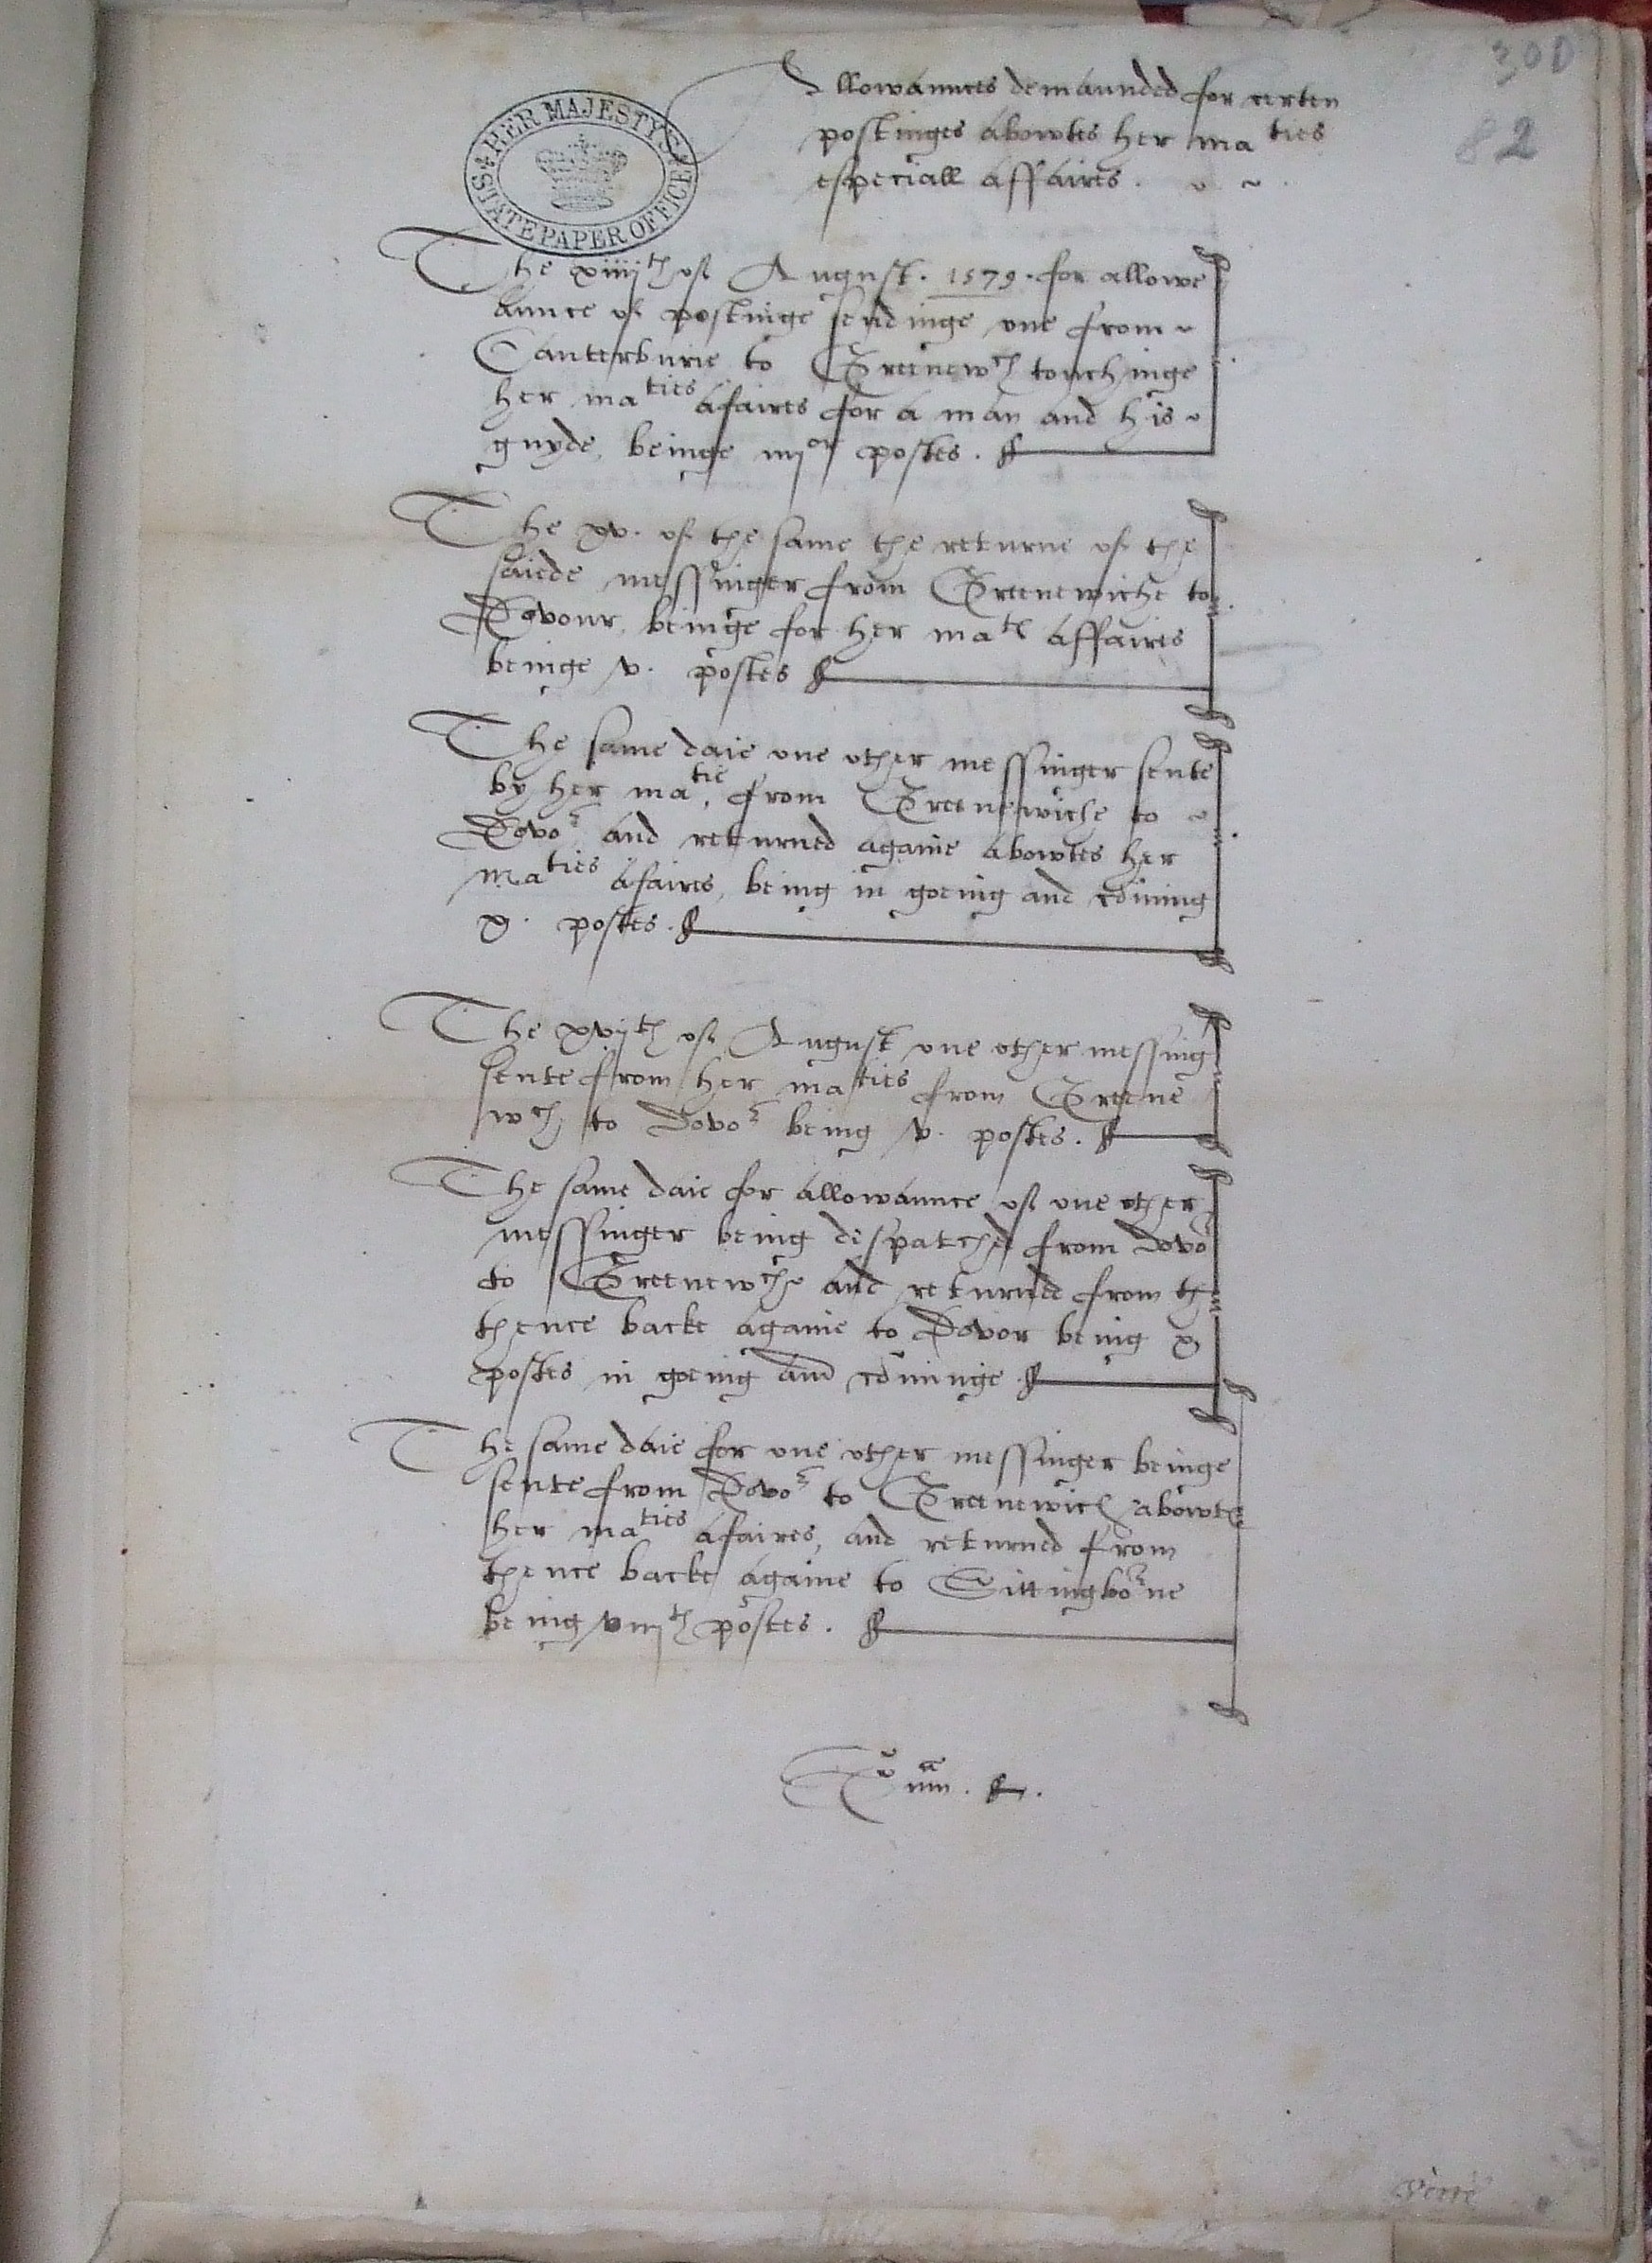 300
82
HER MAJESTY'S STATE PAPER OFFICE
Allowaunces demaunded for certen
postinges abowtes her maties
especiall affaires.
The xiiijth of August. 1579. for allowe
aunce of postinge sendinge one from
Canterburie to Greenewch touchinge
her maties afaires for a man and his
guyde, beinge iiijor postes.
The xv. of the same the returne of the
saiede messinger from Greenewiche to
Dovour, beinge for her mats affaires
beinge v. postes
The same daie one other messinger sente
by her matie, from Greenewiche to
Dovor and returned againe abowtes her
maties afaires, being in goeing and coming
x. postes.
The xvijth of August one other messing
sente from her maties from Greene
wch to Dovor being v. postes.
The same daie for allowaunce of one other
messinger being despatched from Dovor
to Greenewch and returned from th
thence backe againe to Dovor being x
postes in goeing and cominge
The same daie for one other messinger beinge
sente from Dovor to Greenewich abowts
her maties afaires, and returned from
thence backe againe to Sittingborne
being viijth postes.